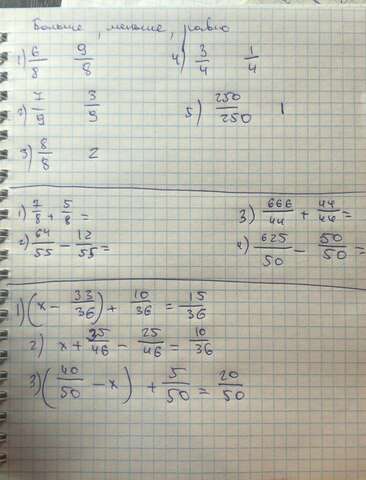 Больше, меньше, равно
1) 6/8 9/8 4) 3/4 1/4
2) 7/9 3/9 5) 250/250 1
3) 8/8 2
1) 7/8 + 5/8 = 3) 666/44 + 44/44 =
2) 64/55 - 12/55 = 4) 625/50 - 50/50 =
1) (x - 33/36) + 10/36 = 15/36
2) x + 35/46 - 25/46 = 10/36
3) (40/50 - x) + 5/50 = 20/50